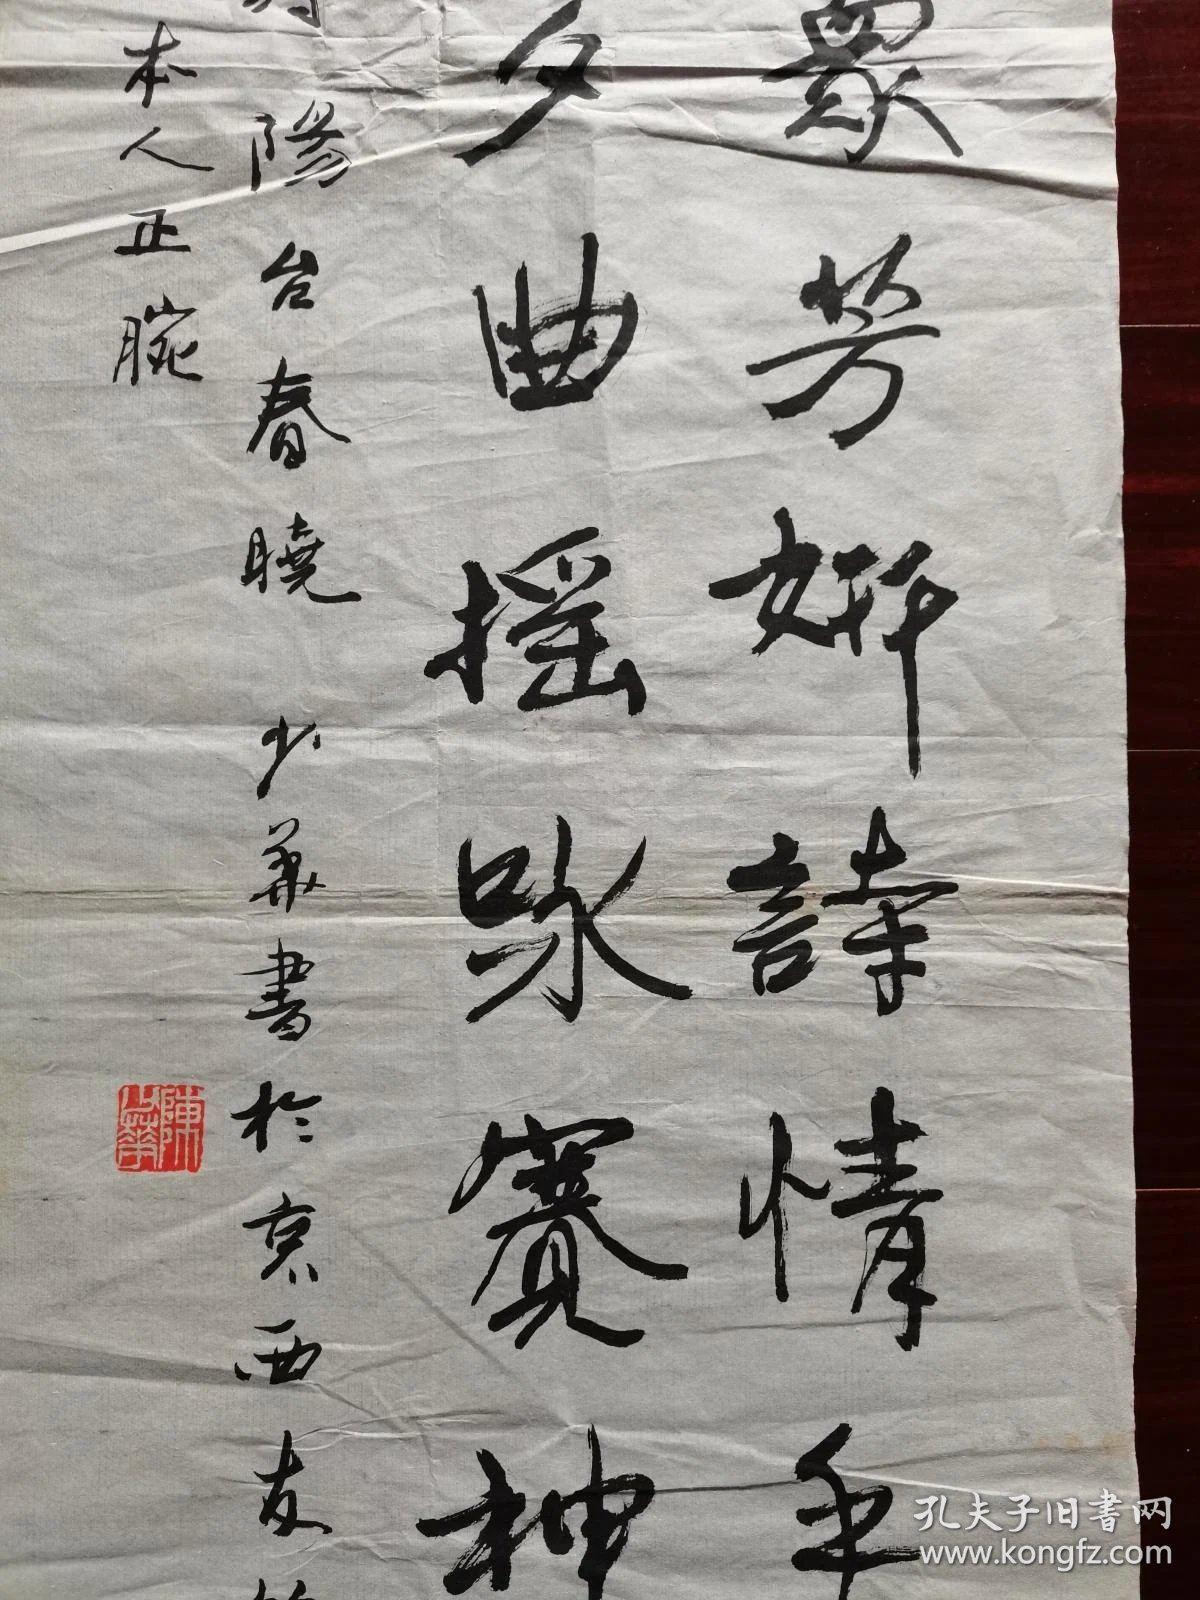 眾芳妍詩情手
夕曲摇咏賽神
陽台春曉 少華書於京西友
本人正腕
陳少華
孔夫子旧書网
www.kongfz.com